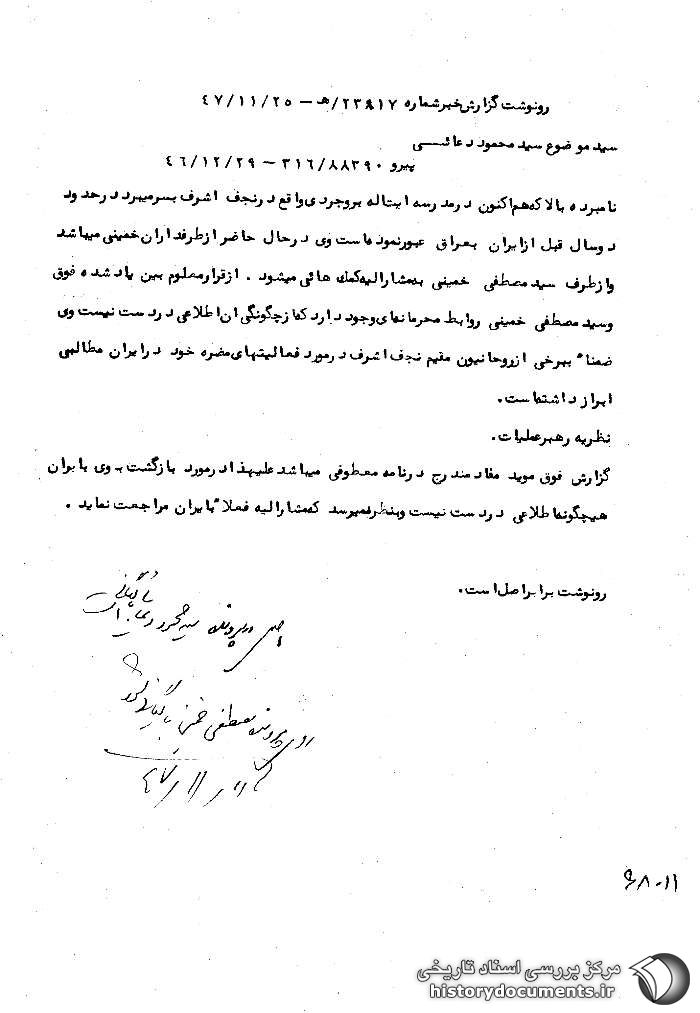 رونوشت گزارش خبر شماره ۲۳۸۱۷/هـ – ۴۷/۱۱/۲۵
سید موضوع سید محمود دعائـــی
پیرو ۳۱۶/۸۸۳۹۰ – ۴۶/۱۲/۲۹
نامبرده بالا که هم اکنون در مدرسه ایتاله بروجردی واقع در نجف اشرف بسر میبرد در حدود
دوسال قبل از ایران بعراق عبور نموده است وی در حال حاضر از طرفداران خمینی میباشد
و از طرف سید مصطفی خمینی به مشارالیه کمک هائی میشود . از قرار معلوم بین یاد شده فوق
و سید مصطفی خمینی روابط محرمانه ای وجود دارد که از چگونگی ان اطلاعی در دست نیست وی
ضمناً ببرخی از روحانیون مقیم نجف اشرف در مورد فعالیتهای مضره خود در ایران مطالبی
ابراز داشته است.
نظریه رهبر عملیات.
گزارش فوق موید مفاد مندرج در نامه معطوفی میباشد علیهذا در مورد بازگشت وی بایران
هیچگونه اطلاعی در دست نیست و بنظر نمیرسد که مشارالیه فعلاً بایران مراجعت نماید .
رونوشت برابر اصل است.
در پرونده سید محمود دعائی
در پرونده مصطفی خمینی بایگانی شود
۴۷/۱۱/
۶۸-۱۱
مرکز بررسی اسناد تاریخی
historydocuments.ir